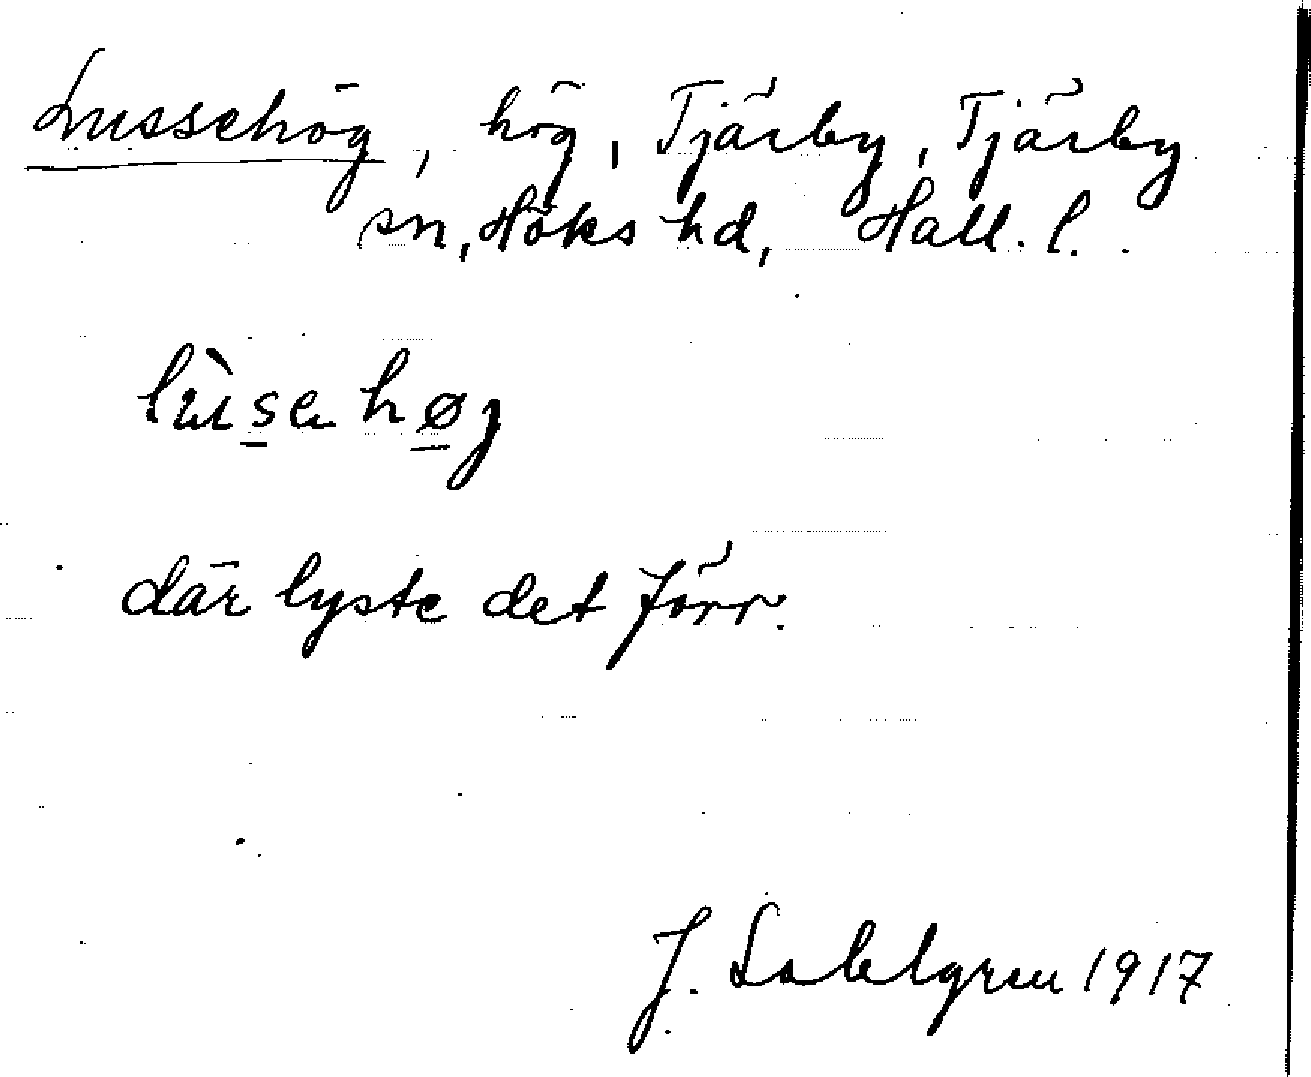 Lussehög, hög, Tjärby, Tjärby
sn, Höks hd, Hall. l.
lùsehøj
där lyste det förr.
J. Sahlgren 1917